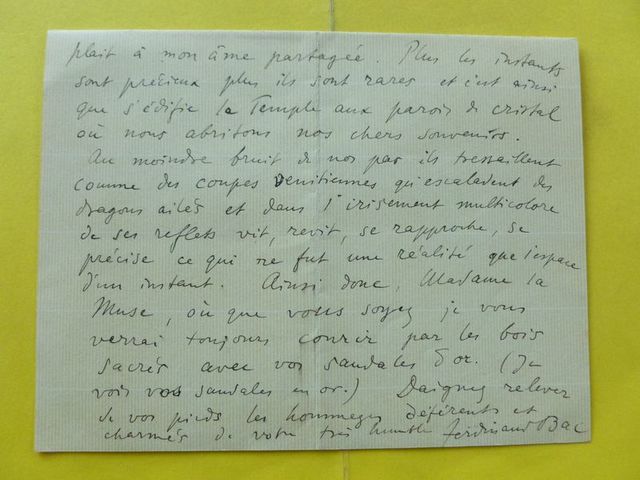 plait à mon âme partagée. Plus les instants
sont précieux plus ils sont rares et c'est ainsi
que s'édifie le Temple aux parois de cristal
où nous abritons nos chers souvenirs.
Au moindre bruit de nos pas ils tressaillent
comme des coupes Venitiennes qu'escaladent des
dragons ailés et dans l'irisement multicolore
de ses reflets vit, revit, se rapproche, se
précise ce qui ne fut une réalité que l'espace
d'un instant. Ainsi donc, Madame la
Muse, où que vous soyez je vous
verrai toujours courir par les bois
sacrés avec vos sandales d'or. (Je
vois vos sandales en or.) Daignez relever
de vos pieds les hommages déférents et
charmés de votre très humble Ferdinand Bac